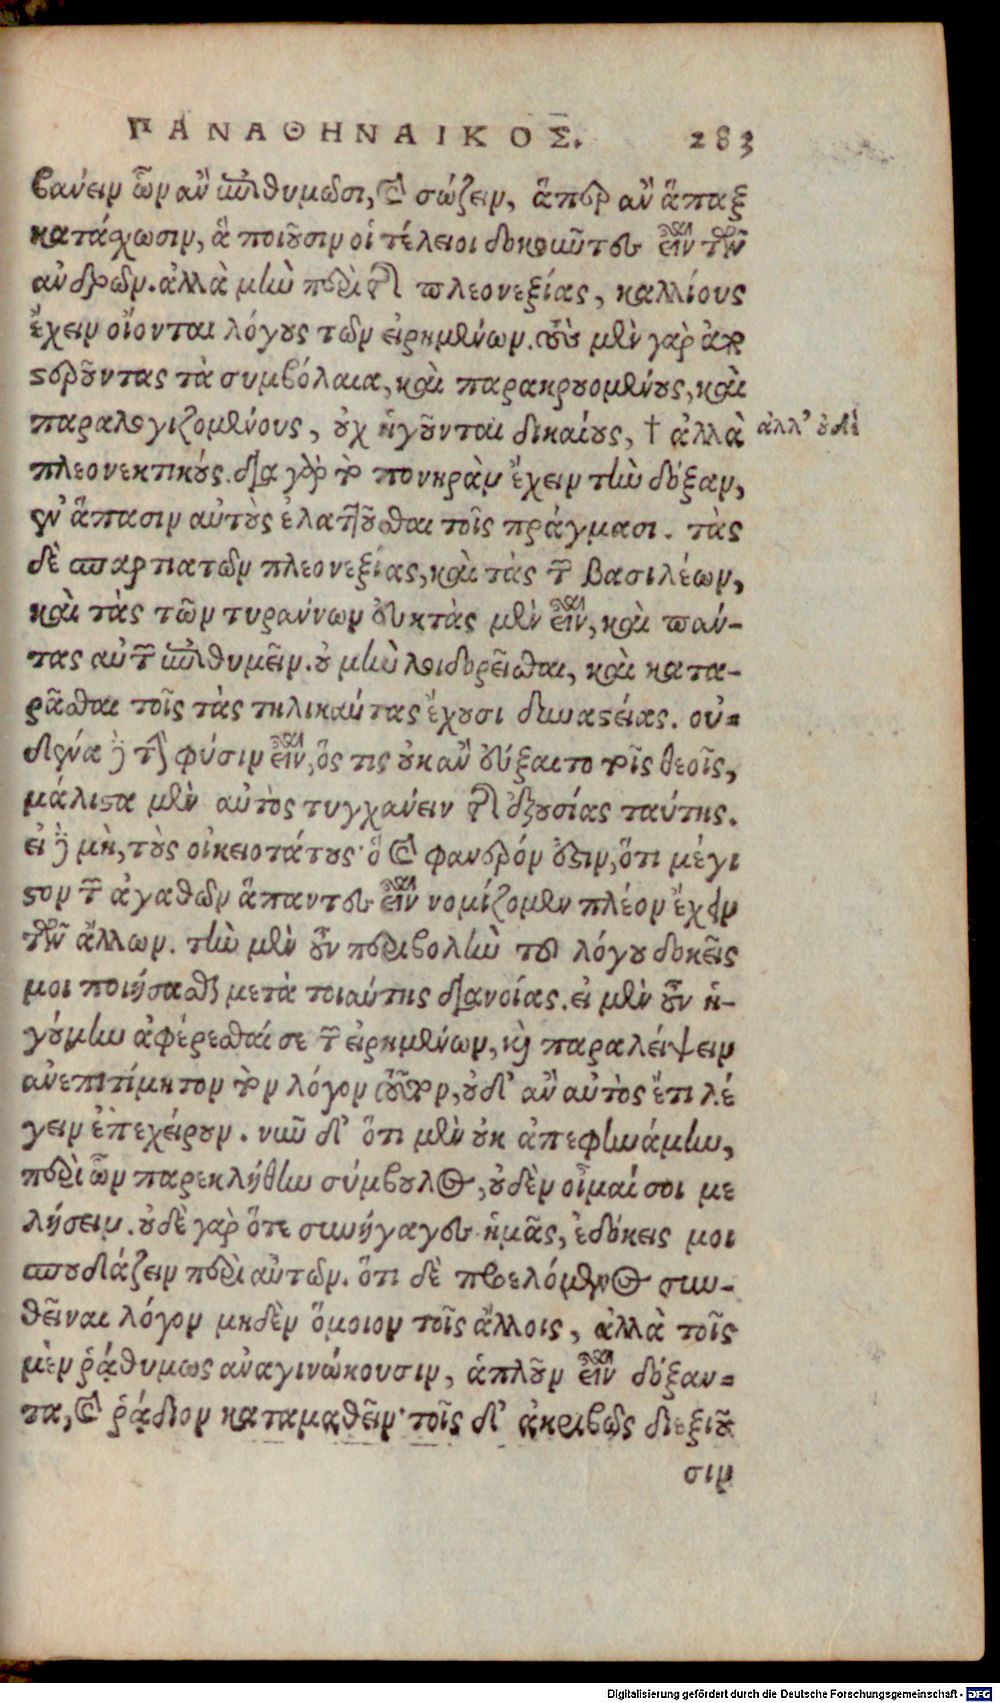 ΠΑΝΑΘΗΝΑΙΚΟΣ. 283
βάνειν ὧν ἂν ἐπιθυμῶσι, καὶ σώζειν, ἅπερ ἂν ἅπαξ
κατάχωσιν, ἃ ποιοῦσιν οἱ τέλειοι δοκοῦντες εἶναι τῶν
ἀνδρῶν. ἀλλὰ μὴν περὶ τῆς πλεονεξίας, καλλίους
ἔχειν οἴονται λόγους τῶν εἰρημένων. τοὺς μὲν γὰρ ἀπο
στεροῦντας τὰ συμβόλαια, καὶ παρακρουομένους, καὶ
παραλογιζομένους, οὐχ ἡγοῦνται δικαίους, † ἀλλὰ
ἀλλ' οὐδὲ
πλεονεκτικούς. διὰ γὰρ τὸ πονηρὰν ἔχειν τὴν δόξαν,
ἐν ἅπασιν αὐτοὺς ἐλαττοῦσθαι τοῖς πράγμασι. τὰς
δὲ σπαρτιατῶν πλεονεξίας, καὶ τὰς τῶν βασιλέων,
καὶ τὰς τῶν τυράννων εὐκτὰς μὲν εἶναι, καὶ πάν-
τας αὐτῶν ἐπιθυμεῖν. οὐ μὴν λοιδορεῖσθαι, καὶ κατα-
ρᾶσθαι τοῖς τὰς τηλικαύτας ἔχουσι δυναστείας. οὐ-
δένα δὲ τὴν φύσιν εἶναι, ὅς τις οὐκ ἂν εὔξαιτο τοῖς θεοῖς,
μάλιστα μὲν αὐτὸς τυγχάνειν τῆς ἐξουσίας ταύτης.
εἰ δὲ μὴ, τοὺς οἰκειοτάτους· ὃ καὶ φανερόν ἐστιν, ὅτι μέγι
στον τῶν ἀγαθῶν ἅπαντες εἶναι νομίζομεν πλέον ἔχειν
τῶν ἄλλων. τὴν μὲν οὖν περιβολὴν τοῦ λόγου δοκεῖς
μοι ποιήσασθαι μετὰ τοιαύτης διανοίας. εἰ μὲν οὖν ἡ-
γούμην ἀφέξεσθαί σε τῶν εἰρημένων, καὶ παραλείψειν
ἀνεπιτίμητον τὸν λόγον τοῦτον, οὐδ' ἂν αὐτὸς ἔτι λέ
γειν ἐπεχείρουν. νῦν δ' ὅτι μὲν οὐκ ἀπεφηνάμην,
περὶ ὧν παρεκλήθην σύμβουλος, οὐδὲν οἶμαί σοι με
λήσειν. οὐδὲ γὰρ ὅτε συνήγαγες ἡμᾶς, ἐδόκεις μοι
σπουδάζειν περὶ αὐτῶν. ὅτι δὲ προελόμενος συν-
θεῖναι λόγον μηδὲν ὅμοιον τοῖς ἄλλοις, ἀλλὰ τοῖς
μὲν ῥᾳθύμως ἀναγινώσκουσιν, ἁπλοῦν εἶναι δόξαν-
τα, καὶ ῥᾴδιον καταμαθεῖν· τοῖς δ' ἀκριβῶς διεξιοῦ
σιν
Digitalisierung gefördert durch die Deutsche Forschungsgemeinschaft - DFG